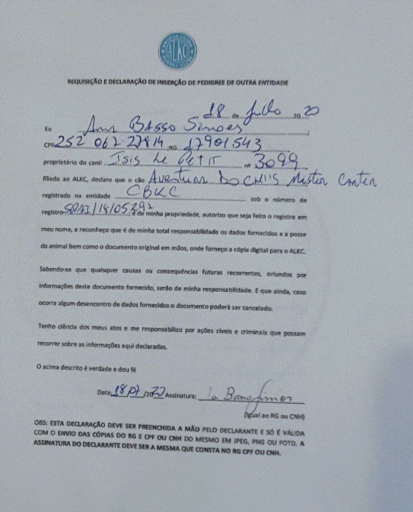 ALKC
REQUISIÇÃO E DECLARAÇÃO DE INSERÇÃO DE PEDIGREE DE OUTRA ENTIDADE
18 de Julho 20 20
Eu Ana BASSO Simoes
CPF 252 067 RG 17901543
proprietário do canil Isis Le Petit nº 3099
filiado ao ALKC, declaro que o cão Mister Canter
registrado na entidade CBKC sob o número de
registro é de minha propriedade, autorizo que seja feito o registro em
meu nome, e reconheço que é de minha total responsabilidade os dados fornecidos e a posse
do animal bem como o documento original em mãos, onde forneço a cópia digital para o ALKC.
Sabendo-se que quaisquer causas ou consequências futuras recorrentes, oriundos por
informações deste documento fornecido, serão de minha responsabilidade. E que ainda, caso
ocorra algum desencontro de dados fornecidos o documento poderá ser cancelado.
Tenho ciência dos meus atos e me responsabilizo por ações cíveis e criminais que possam
recorrer sobre as informações aqui declaradas.
O acima descrito é verdade e dou fé
Data Assinatura:
(Igual ao RG ou CNH)
OBS: ESTA DECLARAÇÃO DEVE SER PREENCHIDA A MÃO PELO DECLARANTE E SÓ É VÁLIDA
COM O ENVIO DAS CÓPIAS DO RG E CPF OU CNH DO MESMO EM JPEG, PNG OU FOTO. A
ASSINATURA DO DECLARANTE DEVE SER A MESMA QUE CONSTA NO RG CPF OU CNH.